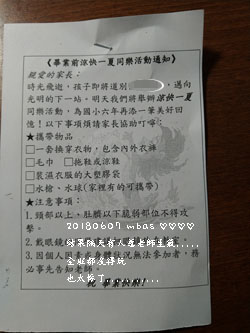 《畢業前涼快一夏同樂活動通知》
親愛的家長：
時光飛逝，孩子即將道別　　，邁向
光明的下一站，明天我們將舉辦涼快一夏
同樂活動，為國小六年再添一筆美好回
憶！以下事項煩請家長協助叮嚀：
★攜帶物品
□一套換穿衣物，包含內外衣褲
□毛巾　□拖鞋或涼鞋
□裝濕衣服的大型膠袋
□水槍、水球（家裡有的可攜帶）
★注意事項：
1.頸部以上，肚臍以下脆弱部位不得攻
擊。
20180607 mbas ♡♡♡♡
2.戴眼鏡
結果隔天有人惹老師生氣.....
3.因個人因素 狀況無法參加者，務
全班都沒得玩
必事先告知老師。
也太慘了........
祝 畢業快樂！